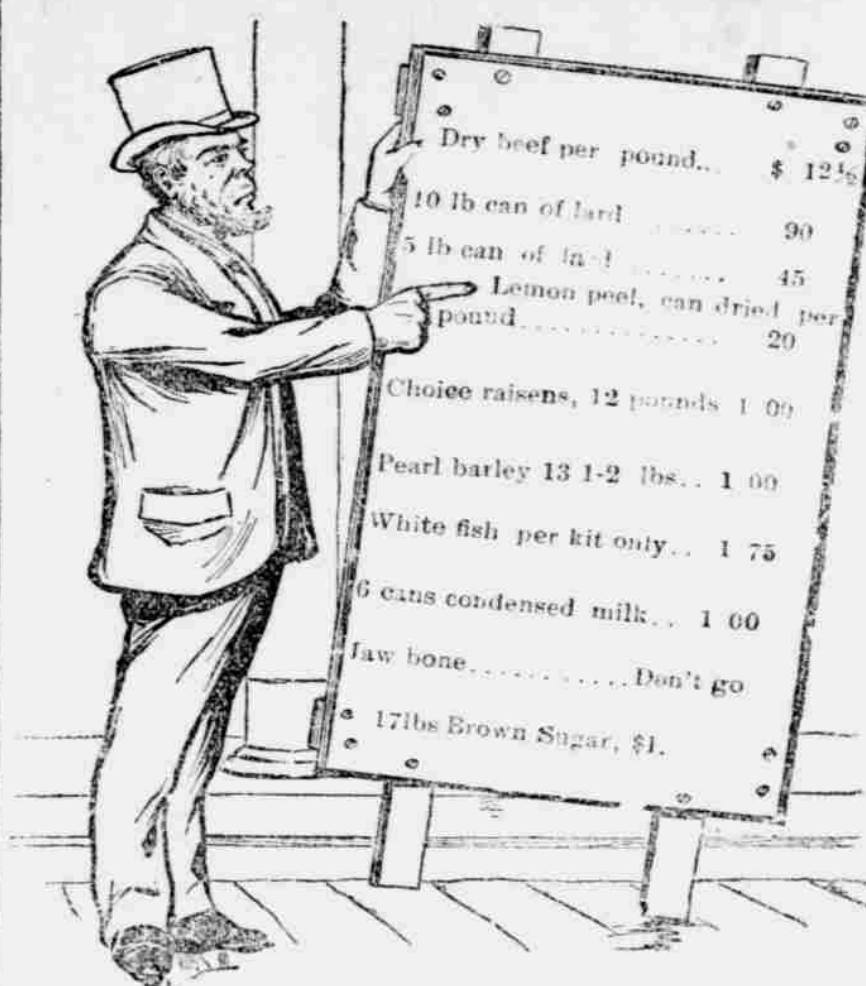 Dry beef per pound... $ 12½
10 lb can of lard ....... 90
5 lb can of lard ....... 45
Lemon peel, can dried per
pound............. 20
Choice raisens, 12 pounds 1 00
Pearl barley 13 1-2 lbs.. 1 00
White fish per kit only.. 1 75
6 cans condensed milk.. 1 00
Jaw bone............Don't go
17lbs Brown Sugar, $1.